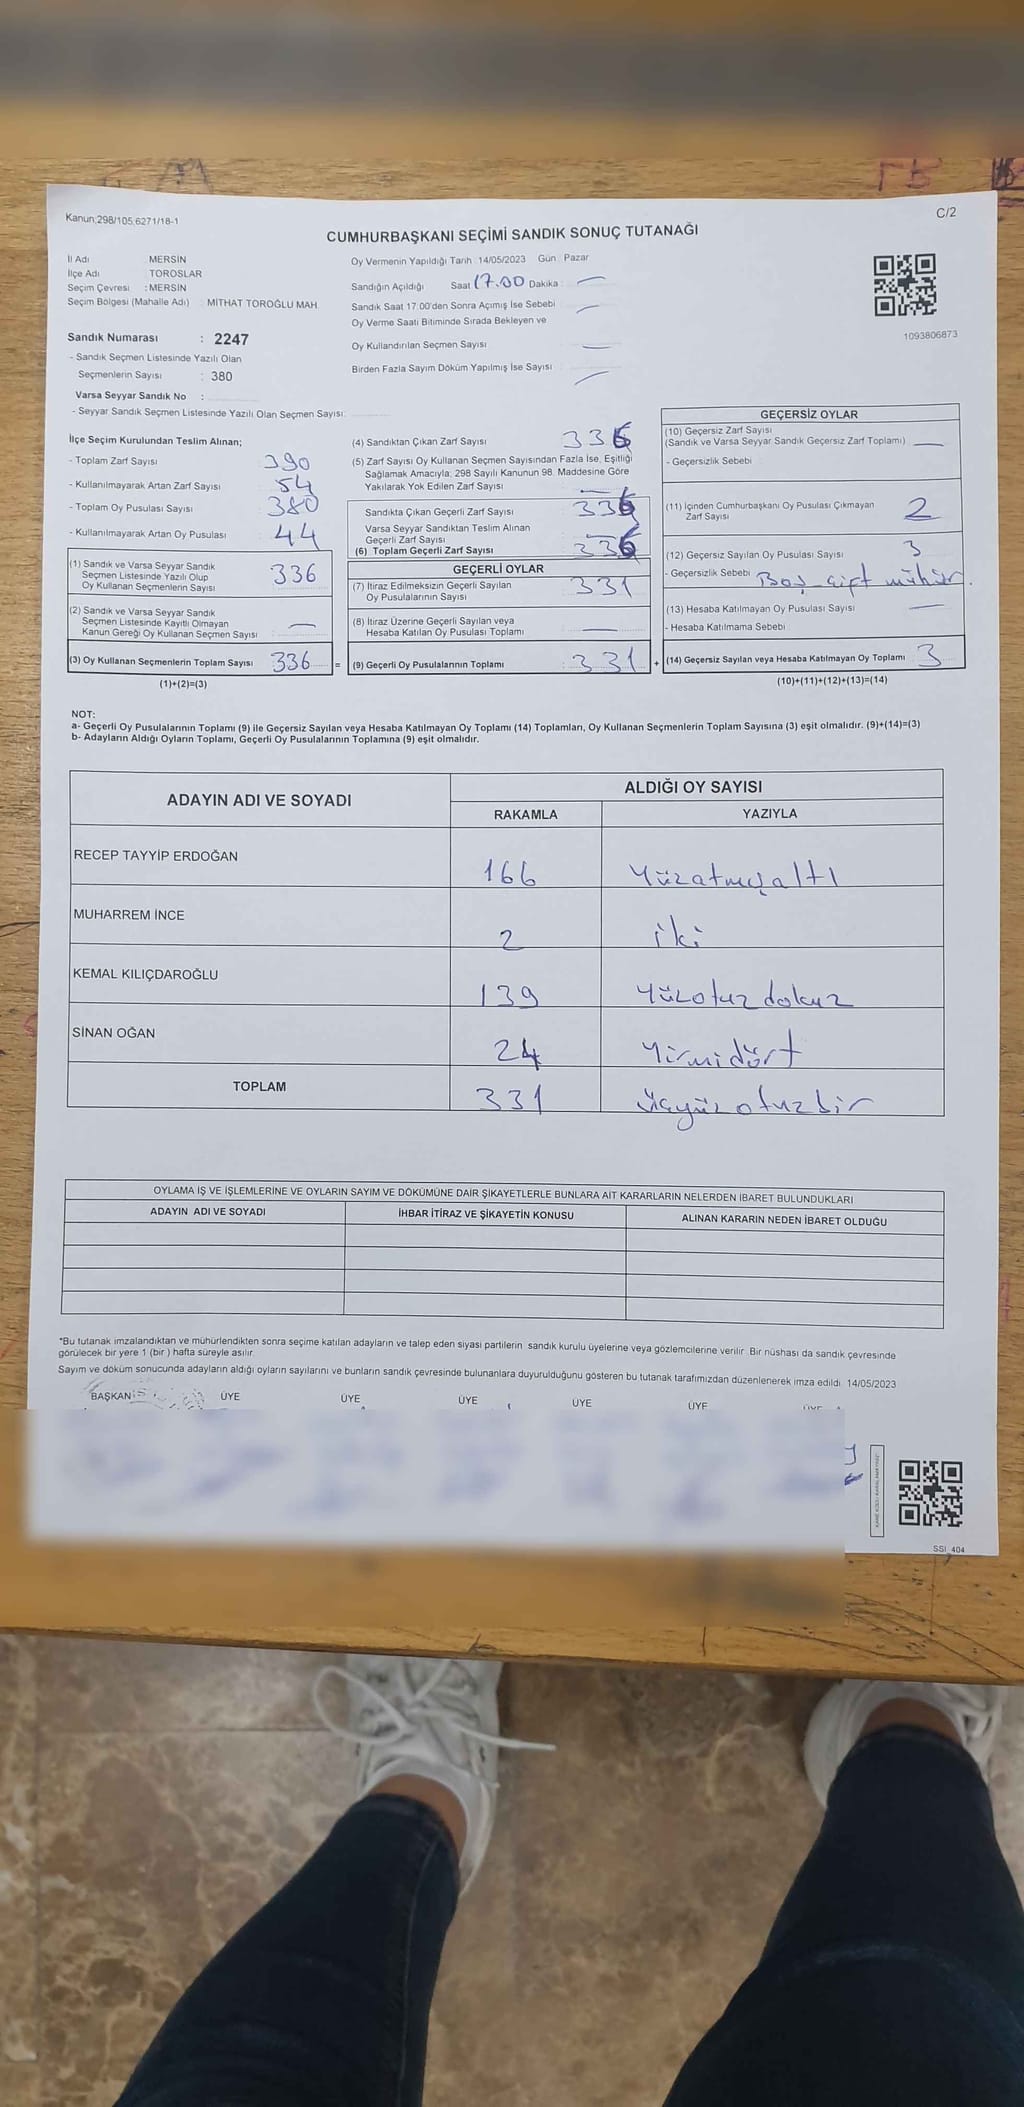 Kanun;298/105,6271/18-1
C/2
CUMHURBAŞKANI SEÇİMİ SANDIK SONUÇ TUTANAĞI
İl Adı : MERSİN
İlçe Adı : TOROSLAR
Seçim Çevresi : MERSİN
Seçim Bölgesi (Mahalle Adı) : MİTHAT TOROĞLU MAH.
Oy Vermenin Yapıldığı Tarih : 14/05/2023 Gün : Pazar
Sandığın Açıldığı Saat 17.00 Dakika : —
Sandık Saat 17:00'den Sonra Açımış İse Sebebi —
Oy Verme Saati Bitiminde Sırada Bekleyen ve
Oy Kullandırılan Seçmen Sayısı —
Birden Fazla Sayım Döküm Yapılmış İse Sayısı —
1093806873
Sandık Numarası : 2247
- Sandık Seçmen Listesinde Yazılı Olan
Seçmenlerin Sayısı : 380
Varsa Seyyar Sandık No :
- Seyyar Sandık Seçmen Listesinde Yazılı Olan Seçmen Sayısı:
İlçe Seçim Kurulundan Teslim Alınan;
- Toplam Zarf Sayısı 390
- Kullanılmayarak Artan Zarf Sayısı 54
- Toplam Oy Pusulası Sayısı 380
- Kullanılmayarak Artan Oy Pusulası 44
(1) Sandık ve Varsa Seyyar Sandık
Seçmen Listesinde Yazılı Olup
Oy Kullanan Seçmenlerin Sayısı 336
(2) Sandık ve Varsa Seyyar Sandık
Seçmen Listesinde Kayıtlı Olmayan
Kanun Gereği Oy Kullanan Seçmen Sayısı —
(3) Oy Kullanan Seçmenlerin Toplam Sayısı 336 =
(1)+(2)=(3)
(4) Sandıktan Çıkan Zarf Sayısı 336
(5) Zarf Sayısı Oy Kullanan Seçmen Sayısından Fazla İse, Eşitliği
Sağlamak Amacıyla; 298 Sayılı Kanunun 98. Maddesine Göre
Yakılarak Yok Edilen Zarf Sayısı —
Sandıkta Çıkan Geçerli Zarf Sayısı 336
Varsa Seyyar Sandıktan Teslim Alınan
Geçerli Zarf Sayısı —
(6) Toplam Geçerli Zarf Sayısı 336
GEÇERLİ OYLAR
(7) İtiraz Edilmeksizin Geçerli Sayılan
Oy Pusulalarının Sayısı 331
(8) İtiraz Üzerine Geçerli Sayılan veya
Hesaba Katılan Oy Pusulası Toplamı —
(9) Geçerli Oy Pusulalarının Toplamı 331 +
GEÇERSİZ OYLAR
(10) Geçersiz Zarf Sayısı
(Sandık ve Varsa Seyyar Sandık Geçersiz Zarf Toplamı) —
- Geçersizlik Sebebi
(11) İçinden Cumhurbaşkanı Oy Pusulası Çıkmayan
Zarf Sayısı 2
(12) Geçersiz Sayılan Oy Pusulası Sayısı 3
- Geçersizlik Sebebi Boş - çift mühür.
(13) Hesaba Katılmayan Oy Pusulası Sayısı —
- Hesaba Katılmama Sebebi
(14) Geçersiz Sayılan veya Hesaba Katılmayan Oy Toplamı 3
(10)+(11)+(12)+(13)=(14)
NOT:
a- Geçerli Oy Pusulalarının Toplamı (9) ile Geçersiz Sayılan veya Hesaba Katılmayan Oy Toplamı (14) Toplamları, Oy Kullanan Seçmenlerin Toplam Sayısına (3) eşit olmalıdır. (9)+(14)=(3)
b- Adayların Aldığı Oyların Toplamı, Geçerli Oy Pusulalarının Toplamına (9) eşit olmalıdır.
ADAYIN ADI VE SOYADI
ALDIĞI OY SAYISI
RAKAMLA YAZIYLA
RECEP TAYYİP ERDOĞAN 166 Yüzatmışaltı
MUHARREM İNCE 2 iki
KEMAL KILIÇDAROĞLU 139 Yüzotuzdokuz
SİNAN OĞAN 24 Yirmidört
TOPLAM 331 üçyüzotuzbir
OYLAMA İŞ VE İŞLEMLERİNE VE OYLARIN SAYIM VE DÖKÜMÜNE DAİR ŞİKAYETLERLE BUNLARA AİT KARARLARIN NELERDEN İBARET BULUNDUKLARI
ADAYIN ADI VE SOYADI İHBAR İTİRAZ VE ŞİKAYETİN KONUSU ALINAN KARARIN NEDEN İBARET OLDUĞU
*Bu tutanak imzalandıktan ve mühürlendikten sonra seçime katılan adayların ve talep eden siyasi partilerin sandık kurulu üyelerine veya gözlemcilerine verilir. Bir nüshası da sandık çevresinde
görülecek bir yere 1 (bir ) hafta süreyle asılır.
Sayım ve döküm sonucunda adayların aldığı oyların sayılarını ve bunların sandık çevresinde bulunanlara duyurulduğunu gösteren bu tutanak tarafımızdan düzenlenerek imza edildi. 14/05/2023
BAŞKAN ÜYE ÜYE ÜYE ÜYE ÜYE ÜYE
SSI_404